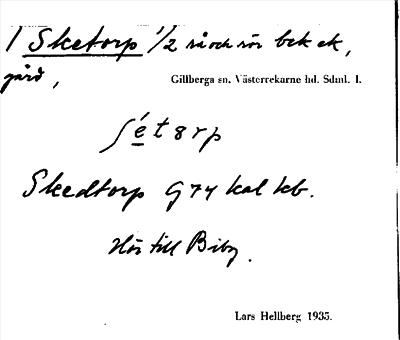 1 Sketorp 1/2 rå och rör bek ek,
gård,
Gillberga sn. Västerrekarne hd. Sdml. 1.
ʃé t ɛ r p
Skedtorp G 74 kal kb.
Hör till Biby.
Lars Hellberg 1935.